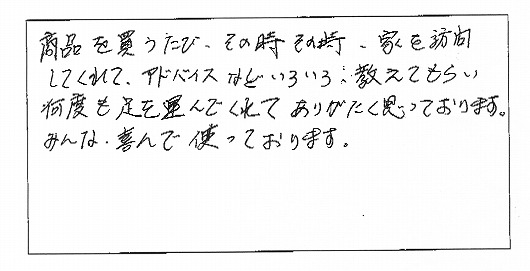 商品を買うたび、その時その時、家を訪問
してくれて、アドバイスなどいろいろ教えてもらい
何度も足を運んでくれてありがたく思っております。
みんな、喜んで使っております。